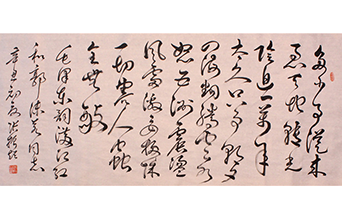 多少事從来
急天地轉光
陰迫一萬年
太久只争朝夕
四海翻腾雲水
怒五洲震盪
風雷激要掃除
一切害人虫
全無敵
毛澤东詞滿江红
和郭沫若同志
辛丑初夏